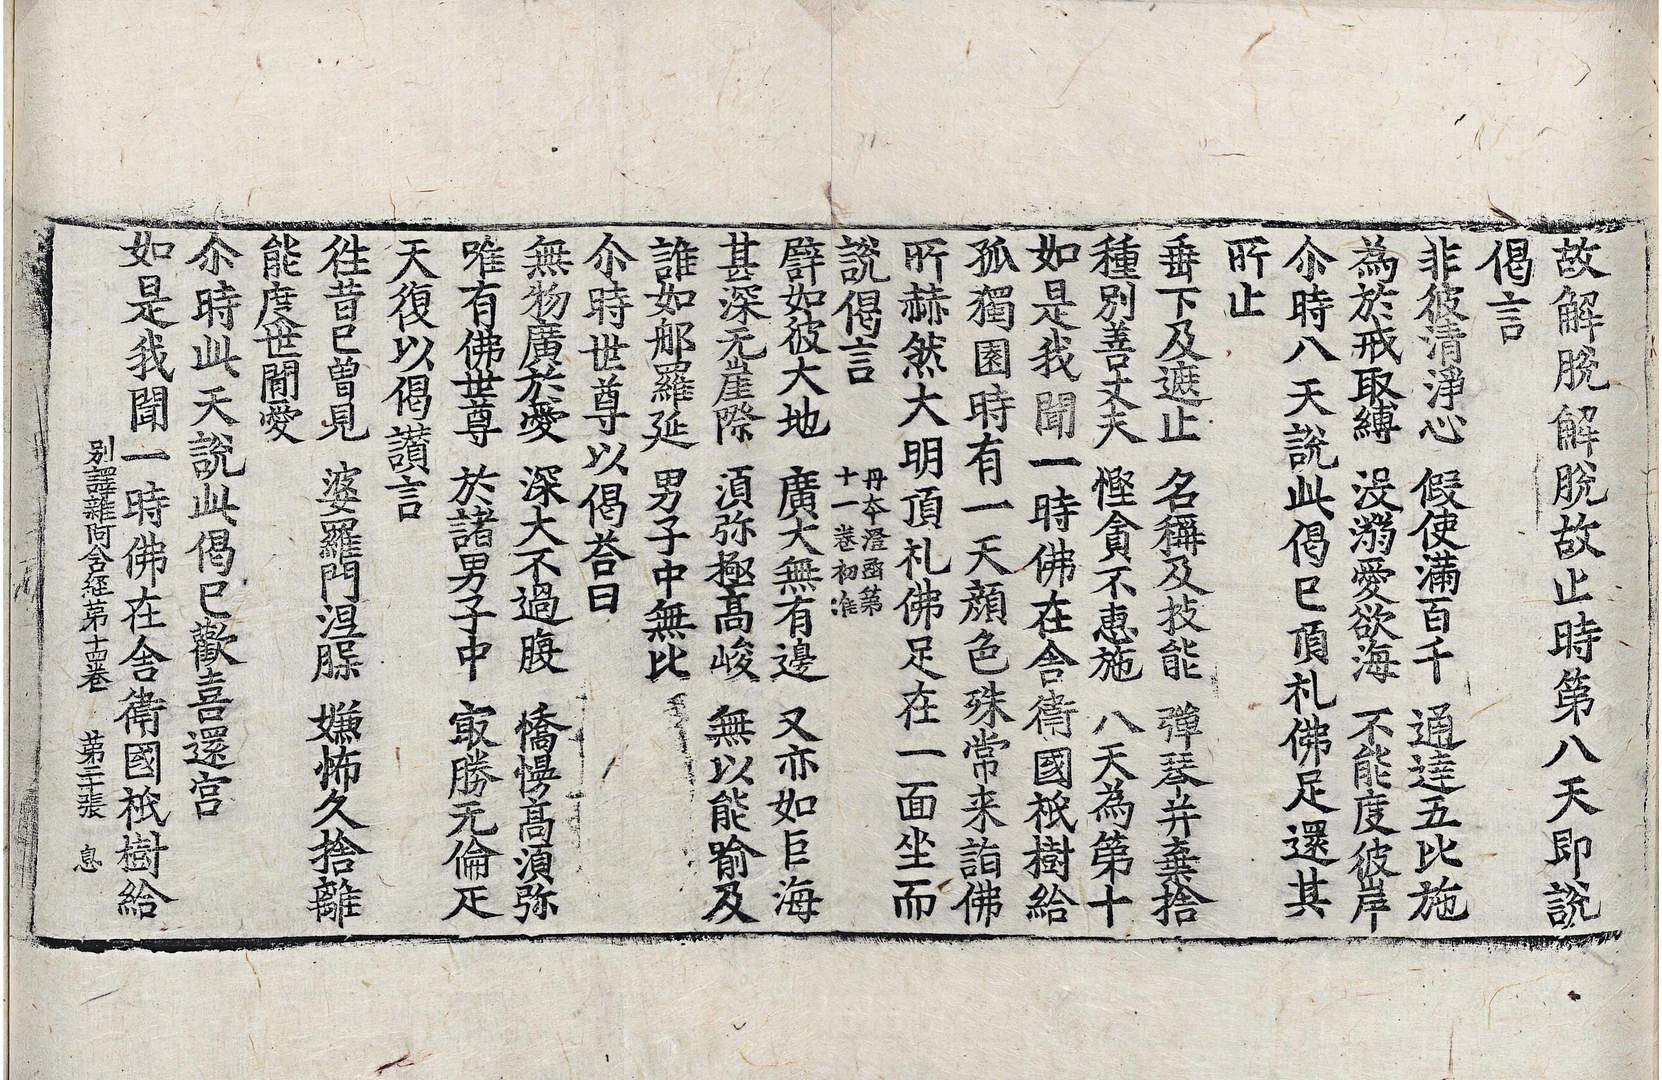 故解脫解脫故止時第八天即說
偈言
非彼清淨心 假使滿百千 通達五比施
為於戒取縛 没溺愛欲海 不能度彼岸
尒時八天說此偈已頂札佛足還其
所止
垂下及遮止 名稱及技能 彈琴并棄捨
種別善丈夫 慳貪不惠施 八天為第十
如是我聞一時佛在舍衛國祇樹給
孤獨園時有一天顔色殊常来詣佛
所赫然大明頂札佛足在一面坐而
說偈言
丹本澄函第
十一卷初准
譬如彼大地 廣大無有邊 又亦如巨海
甚深无崖際 湏弥極高峻 無以能喻及
誰如那羅延 男子中無比
尒時世尊以偈荅曰
無物廣於愛 深大不過腹 憍慢高湏弥
唯有佛世尊 於諸男子中 㝡勝无倫疋
天復以偈讃言
徃昔已曽見 婆羅門涅槃 嫌怖久捨離
能度世間愛
尒時此天說此偈已歡喜還宫
如是我聞一時佛在舍衛國祇樹給
別譯雜阿含經第十四卷 第二十張 息